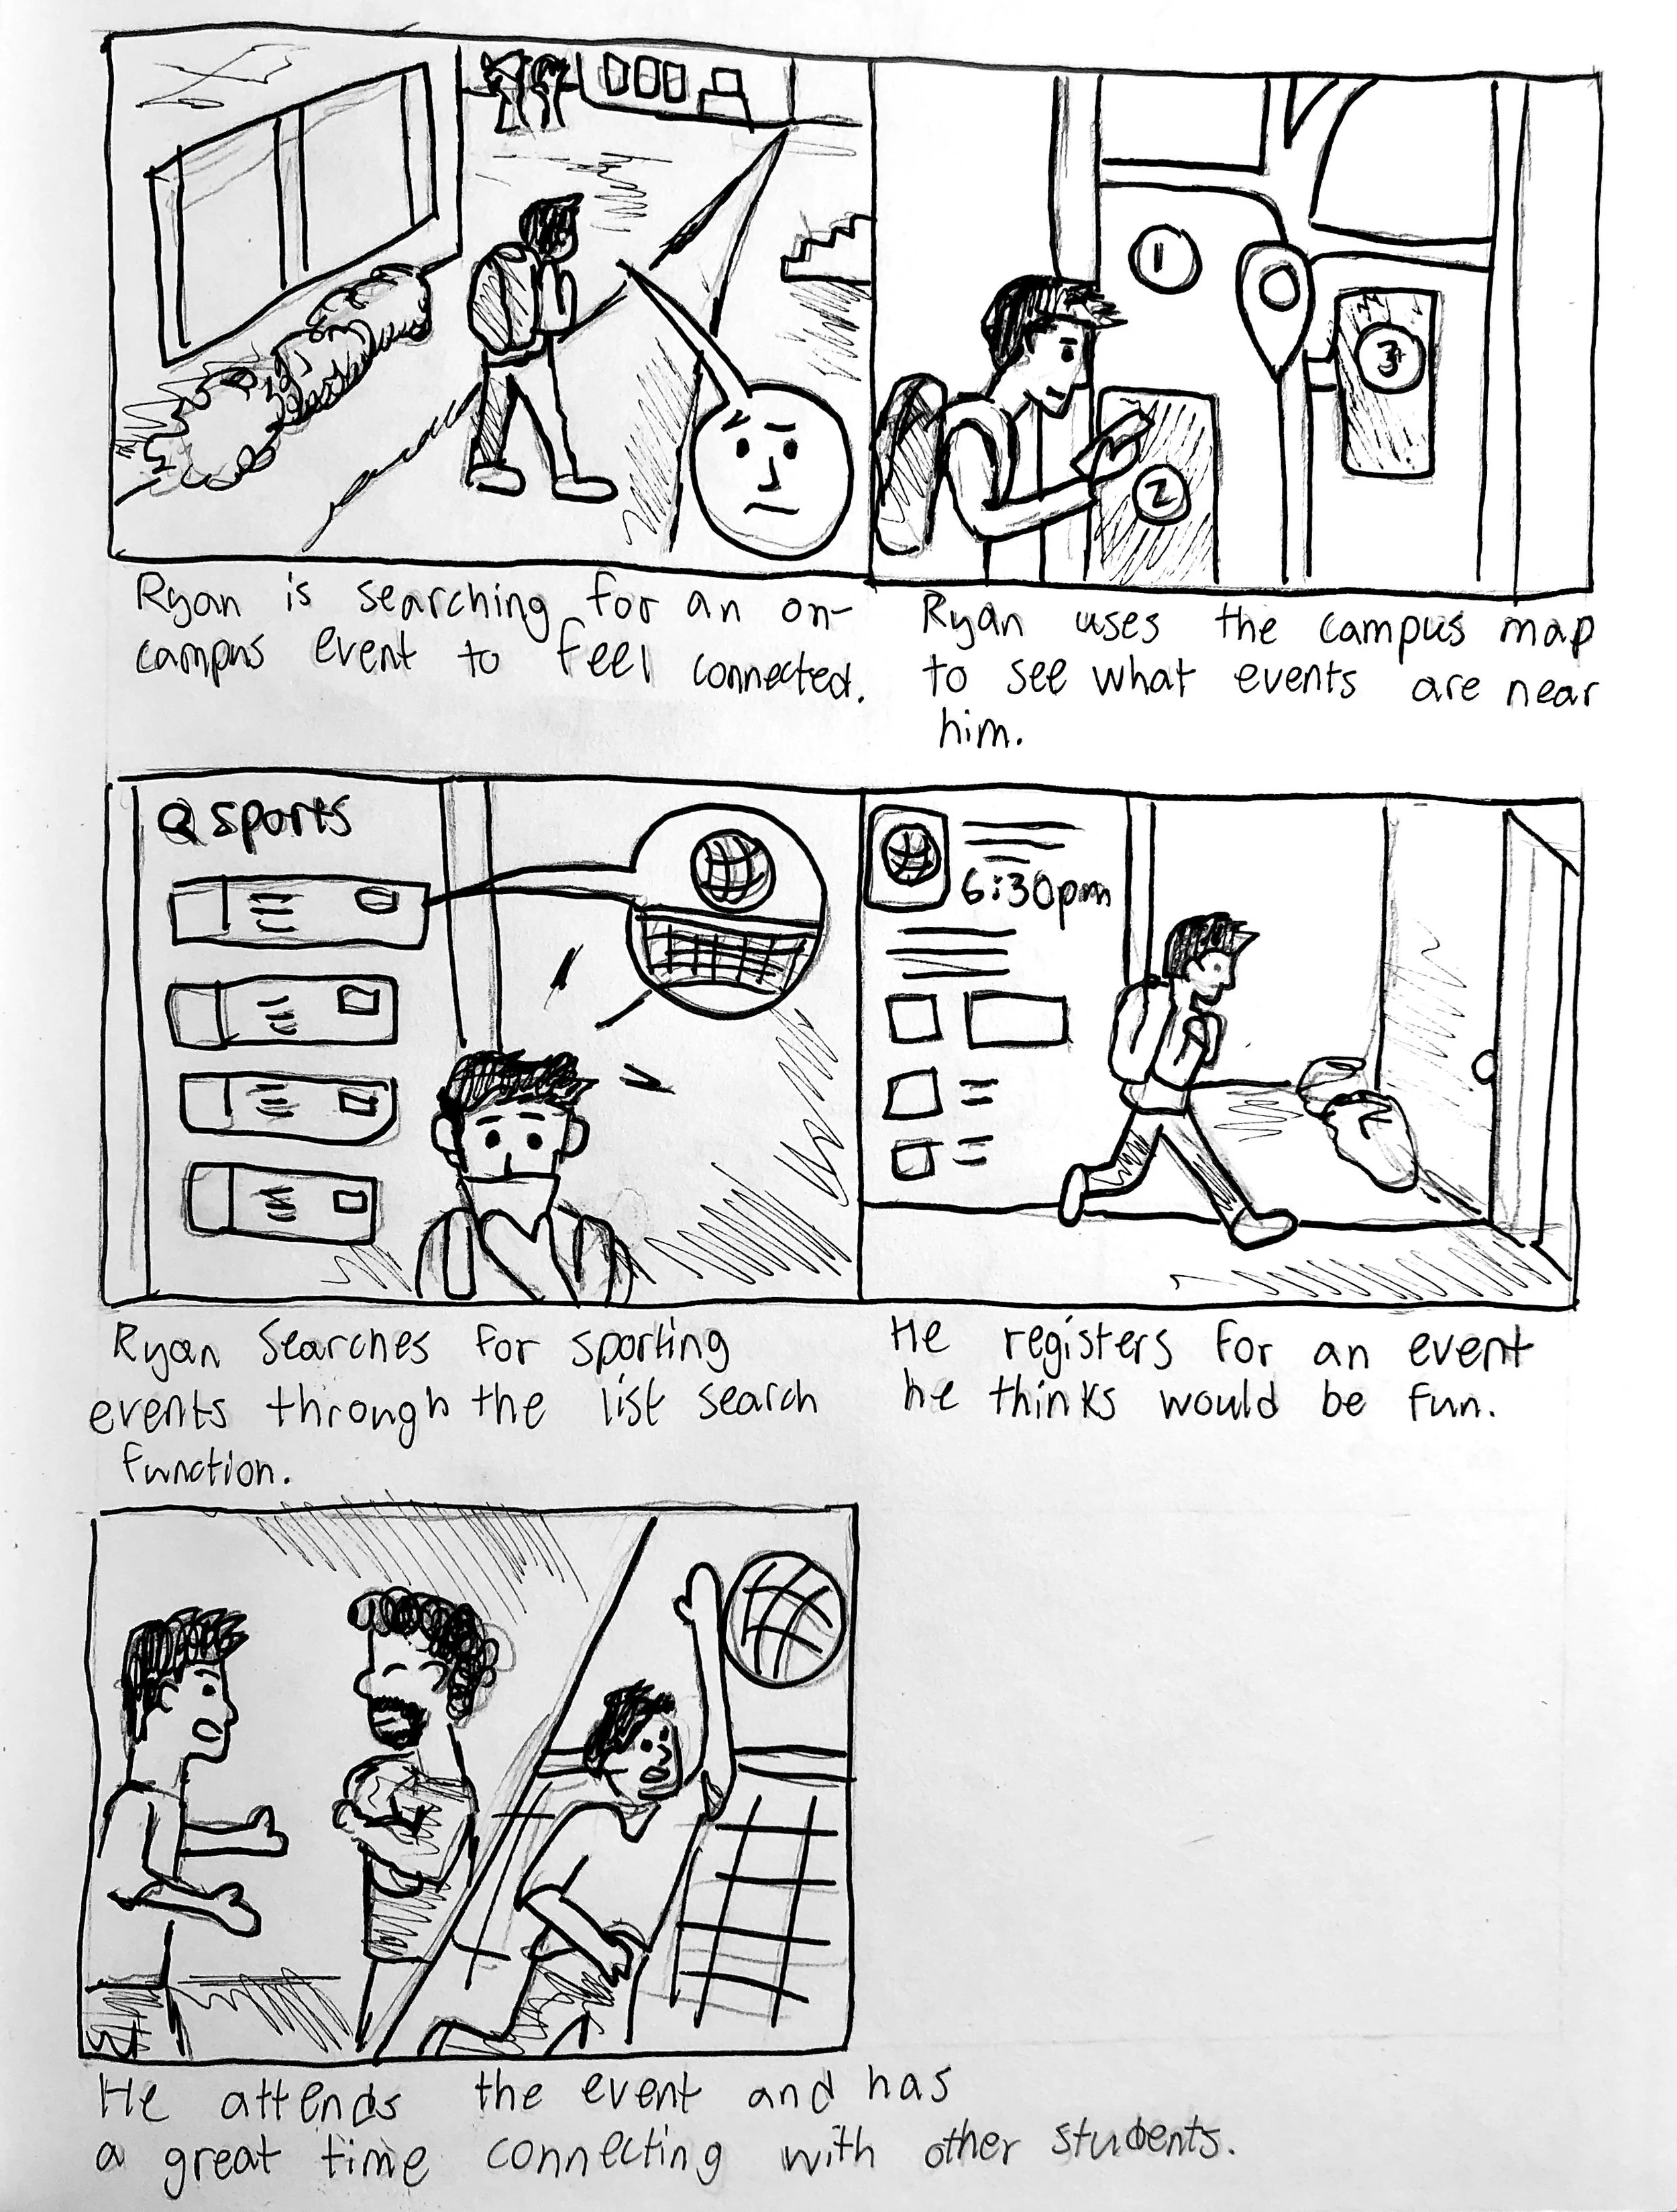 1
3
2
Ryan is searching for an on-
campus event to feel connected.
Ryan uses the campus map
to see what events are near
him.
sports
6:30pm
Ryan Searches for sporting
events through the list search
function.
He registers for an event
he thinks would be fun.
He attends the event and has
a great time connecting with other students.